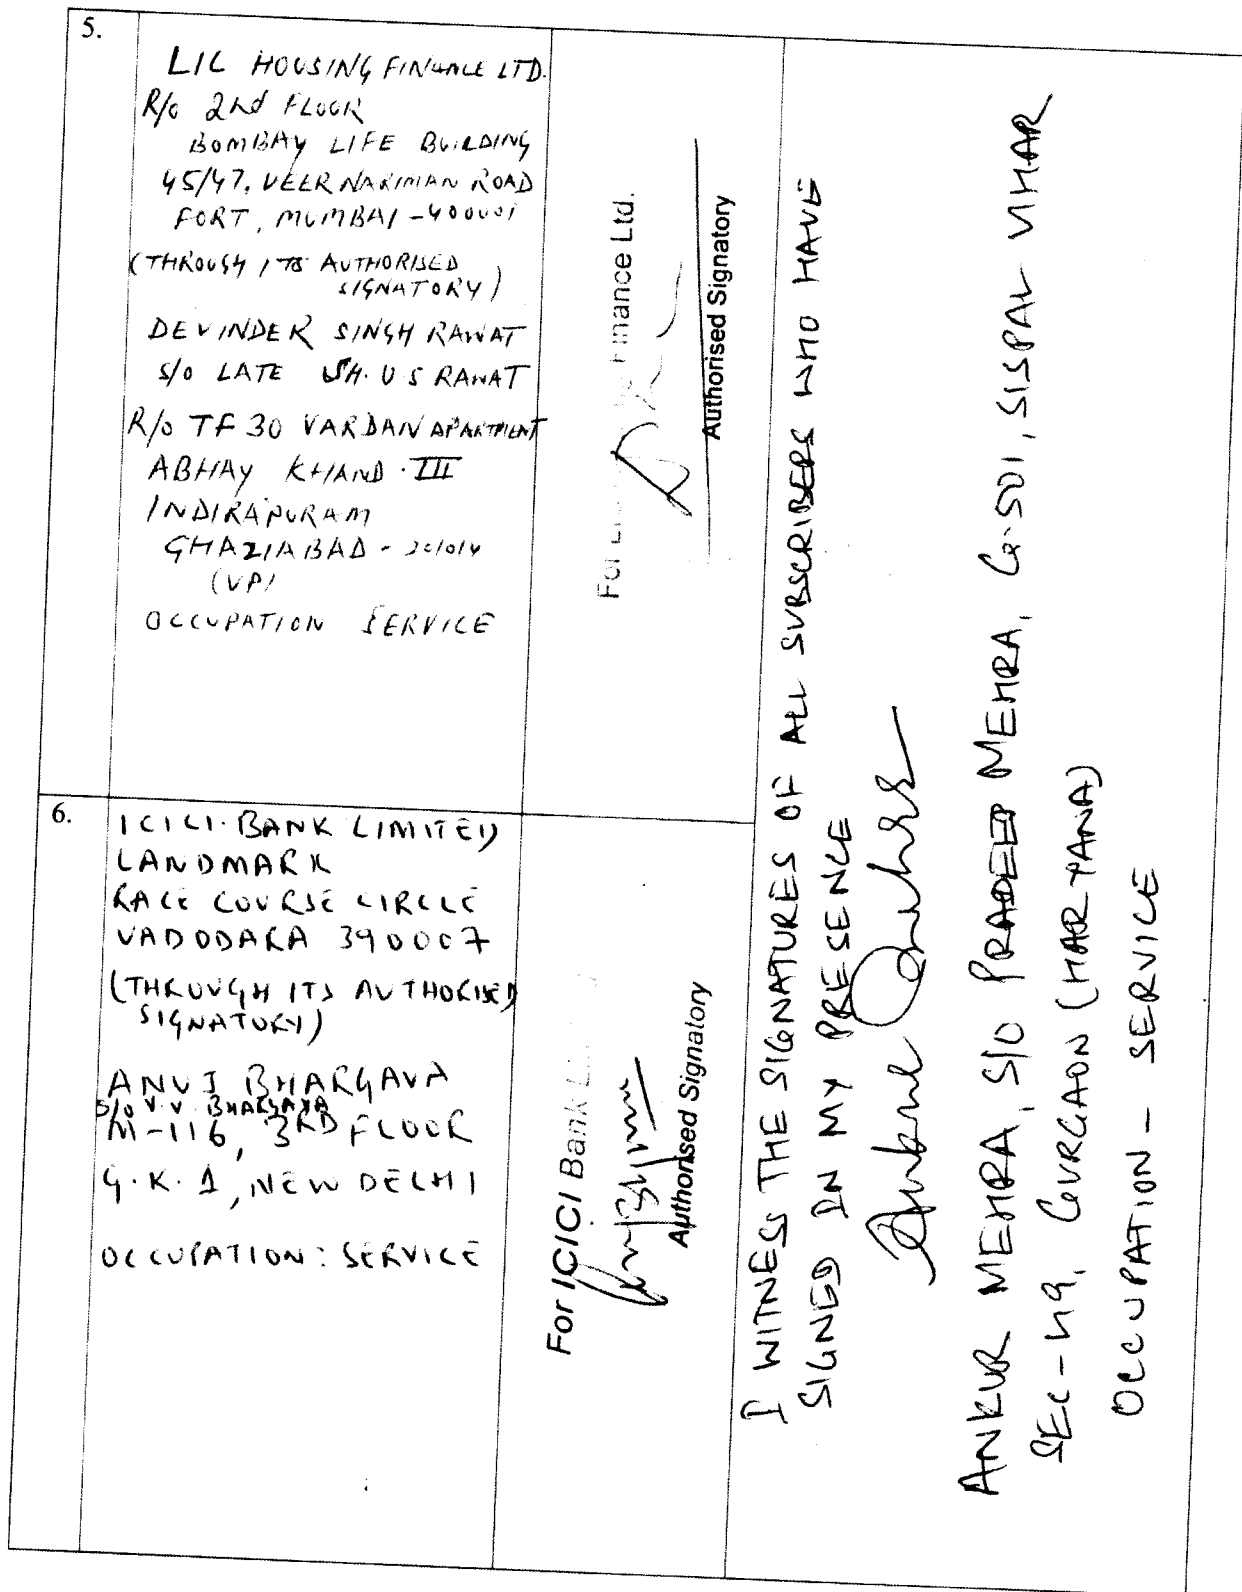 5.
LIC HOUSING FINANCE LTD.
R/o 2nd FLOOR
BOMBAY LIFE BUILDING
45/47, VEER NARIMAN ROAD
FORT, MUMBAI - 400001
(THROUGH ITS AUTHORISED
SIGNATORY)
DEVINDER SINGH RAWAT
S/o LATE SH. U S RAWAT
R/o TF 30 VARDAN APARTMENT
ABHAY KHAND - III
INDIRAPURAM
GHAZIABAD - 201014
(UP)
OCCUPATION SERVICE
Finance Ltd.
Authorised Signatory
6.
ICICI BANK LIMITED
LANDMARK
RACE COURSE CIRCLE
VADODARA 390007
(THROUGH ITS AUTHORISED
SIGNATORY)
ANUJ BHARGAVA
S/o V.V. BHARGAVA
M-116, 3RD FLOOR
G.K. 1, NEW DELHI
OCCUPATION: SERVICE
For ICICI Bank
Authorised Signatory
I WITNESS THE SIGNATURES OF ALL SUBSCRIBERS WHO HAVE
SIGNED IN MY PRESENCE
ANKUR MEHRA, S/O PRADEEP MEHRA, G-501, SISPAL VIHAR
SEC-49, GURGAON (HARYANA)
OCCUPATION - SERVICE